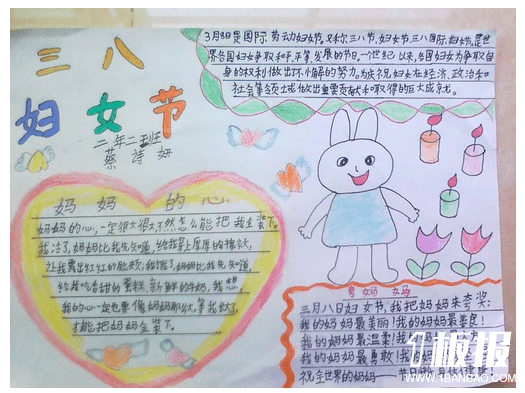 三八
妇女节
二年二班
蔡诗妍
3月8日是国际劳动妇女节。又称三八节,妇女节,三八国际妇女节。是世
界各国妇女争取和平、平等、发展的节日。一个世纪以来,各国妇女为争取自
身的权利做出不懈的努力。为庆祝妇女在经济、政治和
社会等领域做出重要贡献和取得的巨大成就。
妈妈的心
妈妈的心,一定很大很大,不然怎么能把我全装下。
我冷了,妈妈比我先知道,给我穿上厚厚的棉衣,
让我露出红红的脸颊,我饿了,妈妈比我先知道,
给我吃香甜的蛋糕,新鲜的牛奶,我想
我的心一定也要像妈妈那么,等我长大了,
才能把妈妈全装下。
夸妈妈
三月八日妇女节,我把妈妈来夸奖:
我的妈妈最美丽!我的妈妈最善良!
我的妈妈最温柔!我的妈妈
我的妈妈最勇敢!我的妈妈
祝全世界的妈妈——节日快乐身体健康!
板报
WWW.1BANBAO.COM